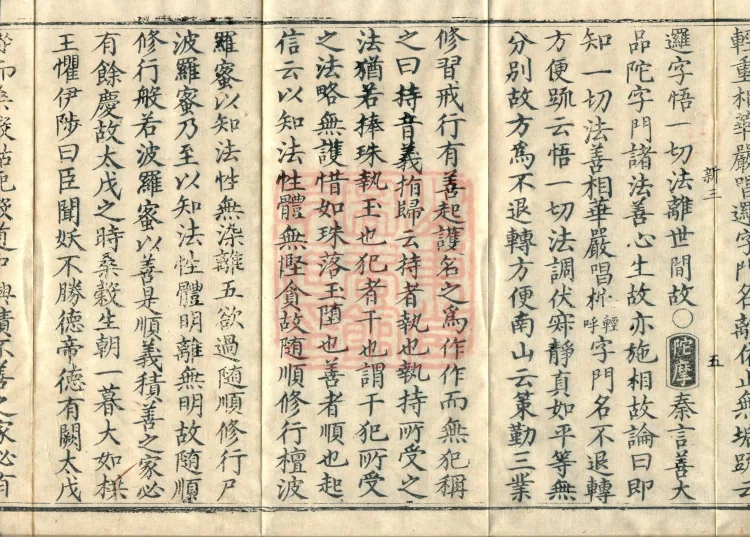 輕重相華嚴唱邏字門名離依止無垢疏云
新三
五
邏字悟一切法離世間故〇陀摩秦言善大
品陀字門諸法善心生故亦施相故論曰即
知一切法善相華嚴唱柂輕呼字門名不退轉
方便疏云悟一切法調伏寂靜真如平等無
分別故方為不退轉方便南山云策勤三業
修習戒行有善起護名之為作作而無犯稱
之曰持音義指歸云持者執也執持所受之
法猶若捧珠執玉也犯者干也謂干犯所受
之法略無護惜如珠落玉墮也善者順也起
信云以知法性體無慳貪故隨順修行檀波
羅蜜以知法性無染離五欲過隨順修行尸
波羅蜜乃至以知法性體明離無明故隨順
修行般若波羅蜜以善是順義積善之家必
有餘慶故太戊之時桑穀生朝一暮大如拱
王懼伊陟曰臣聞妖不勝德帝德有闕太戊